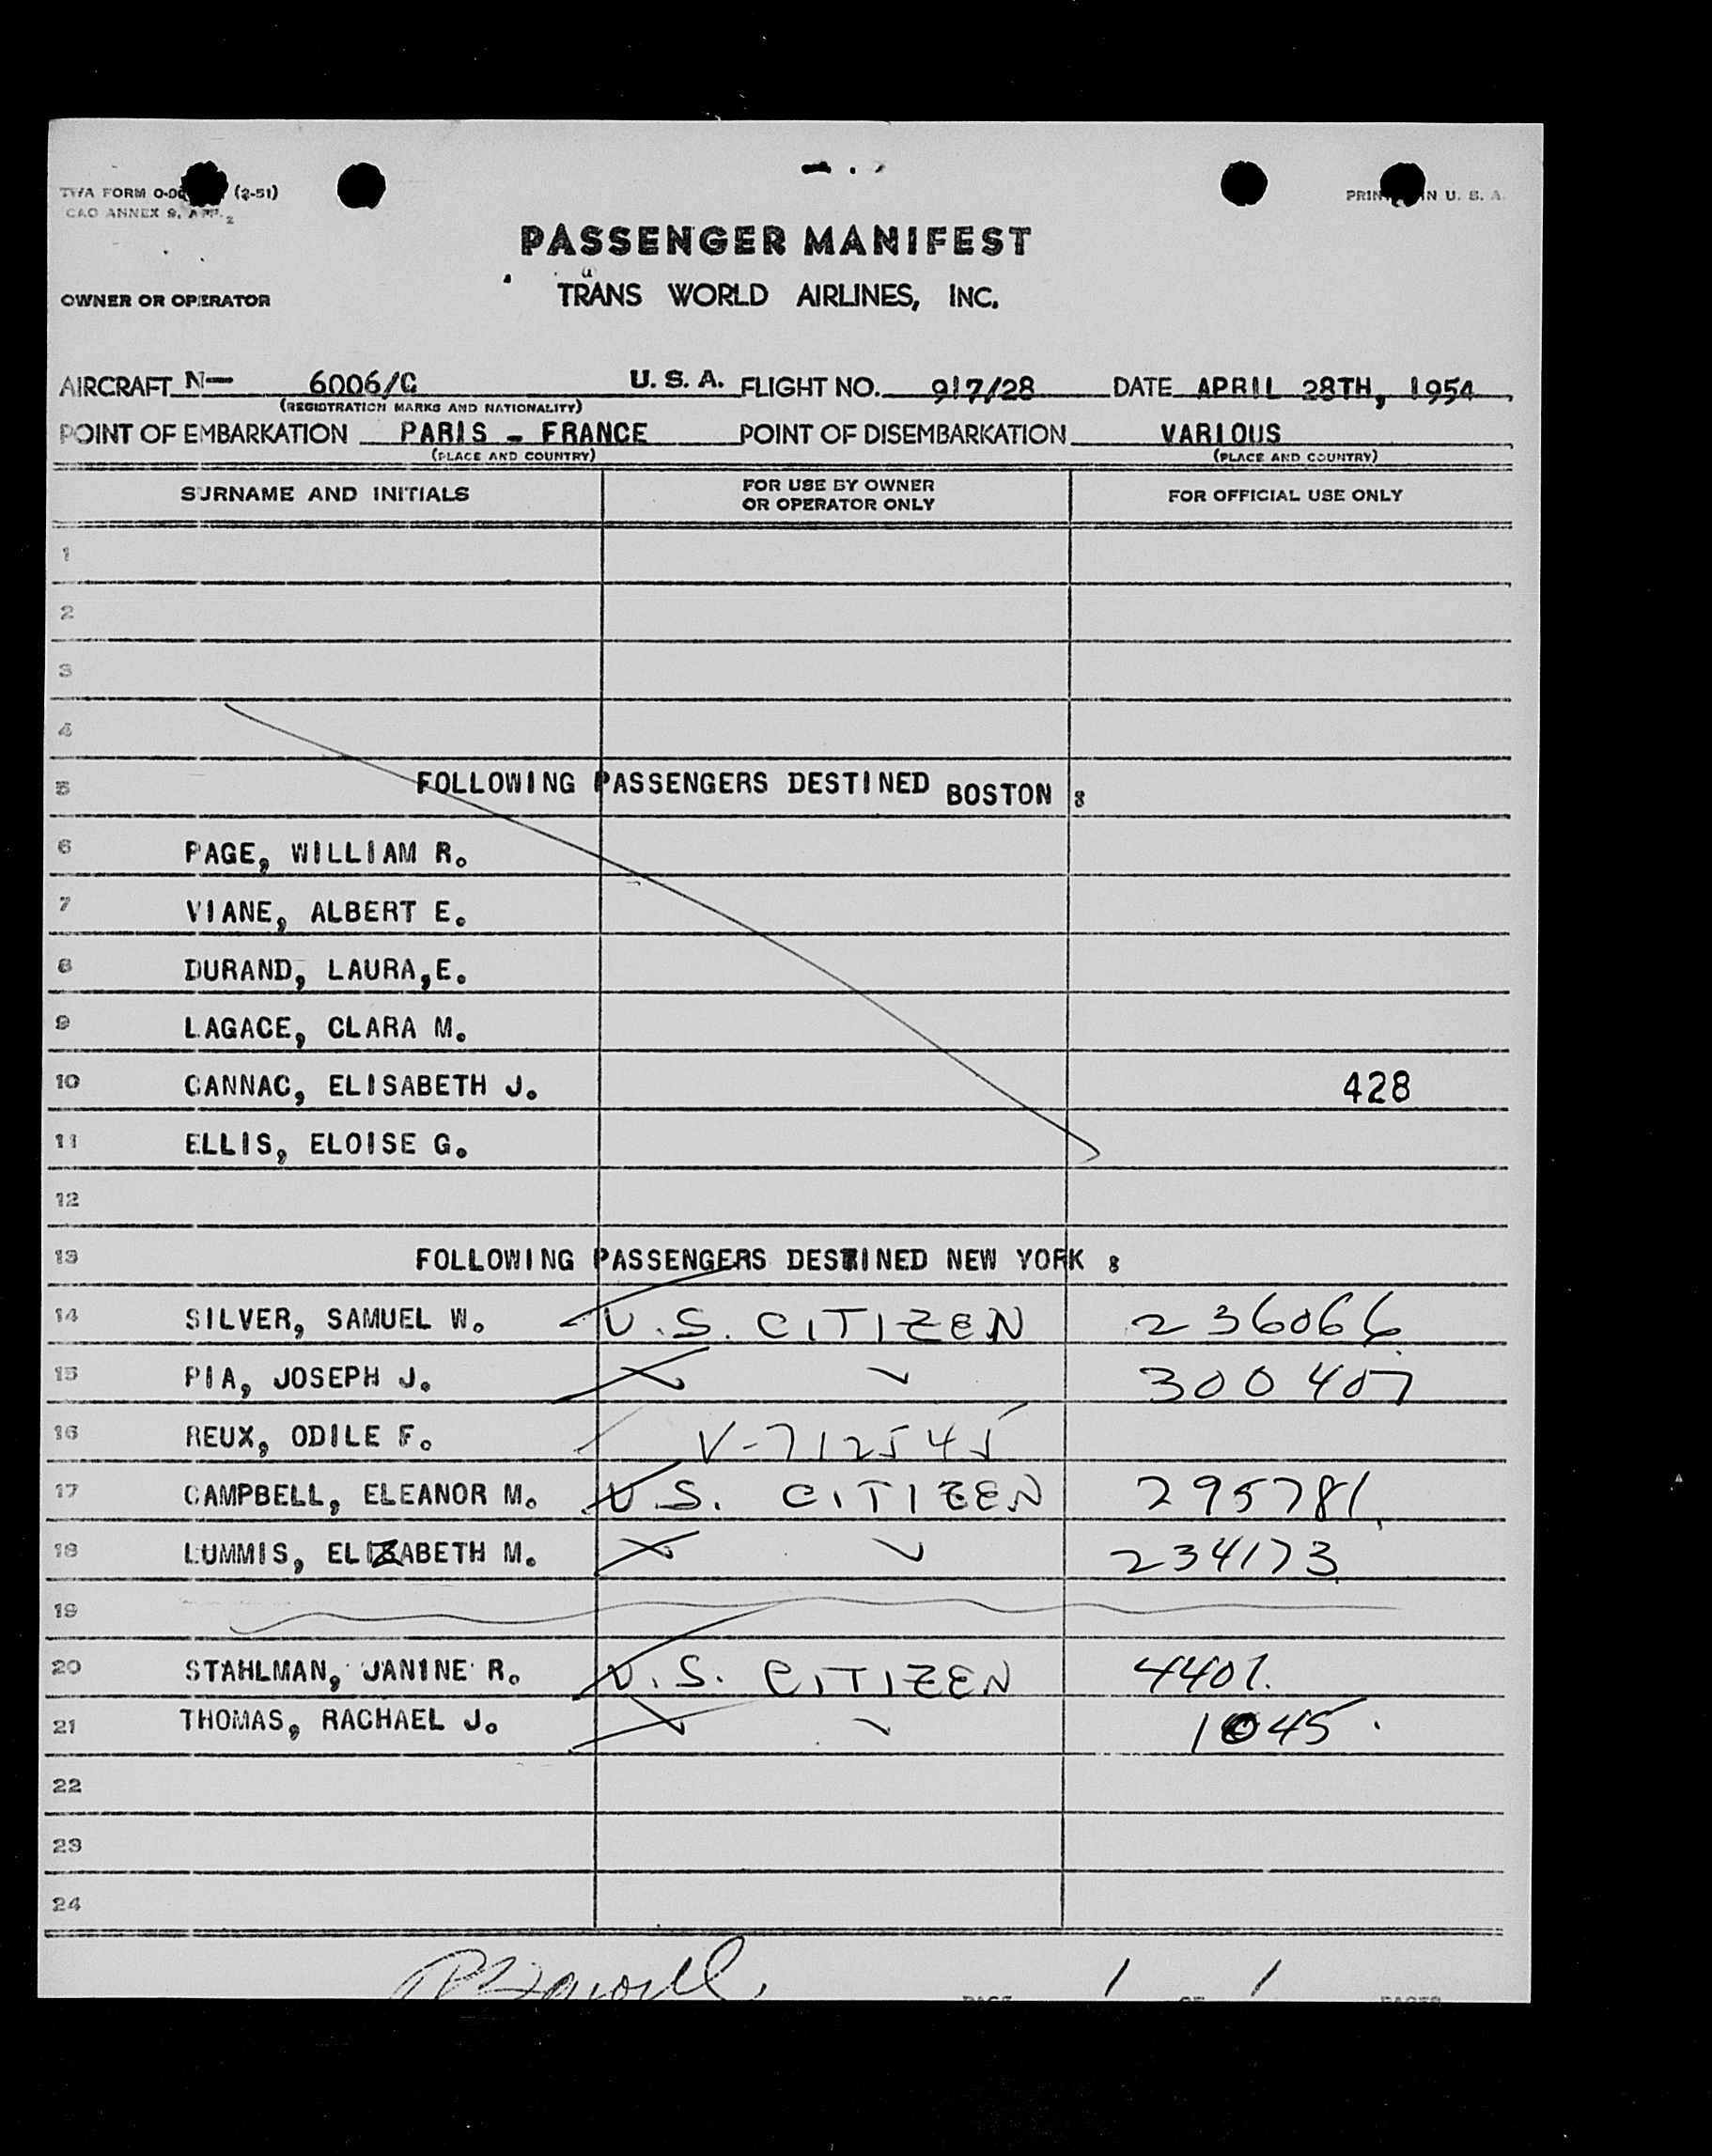 TWA FORM O-0 (2-51)
PRIN IN U. S. A.
ICAO ANNEX 9, APP. 2
PASSENGER MANIFEST
OWNER OR OPERATOR TRANS WORLD AIRLINES, INC.
AIRCRAFT N— 6006/C U. S. A. FLIGHT NO. 917/28 DATE APRIL 28TH, 1954
(REGISTRATION MARKS AND NATIONALITY)
POINT OF EMBARKATION PARIS - FRANCE POINT OF DISEMBARKATION VARIOUS
(PLACE AND COUNTRY) (PLACE AND COUNTRY)
SURNAME AND INITIALS FOR USE BY OWNER OR OPERATOR ONLY FOR OFFICIAL USE ONLY
1
2
3
4
5 FOLLOWING PASSENGERS DESTINED BOSTON :
6 PAGE, WILLIAM R.
7 VIANE, ALBERT E.
8 DURAND, LAURA,E.
9 LAGACE, CLARA M.
10 CANNAC, ELISABETH J. 428
11 ELLIS, ELOISE G.
12
13 FOLLOWING PASSENGERS DESTINED NEW YORK :
14 SILVER, SAMUEL W. U.S. CITIZEN 236066
15 PIA, JOSEPH J. 300407
16 REUX, ODILE F. V-712545
17 CAMPBELL, ELEANOR M. U.S. CITIZEN 295781
18 LUMMIS, ELIZABETH M. 234173
19
20 STAHLMAN, JANINE R. U.S. CITIZEN 4401.
21 THOMAS, RACHAEL J. 1045.
22
23
24
PAGE 1 OF 1 PAGES